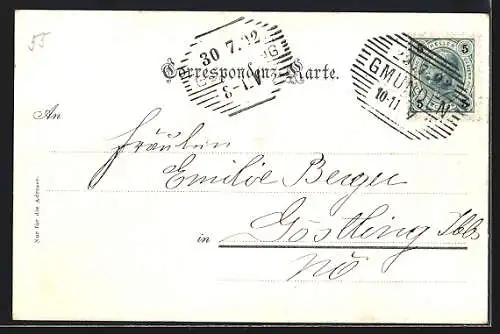 55
30 7.02
8-1.V
Correspondenz-Karte.
HELLER
5 5
GMUNDEN
10-11
An
Fräulein
Emilie Berger
in Göstling Ybbs
NÖ
Nur für die Adresse.